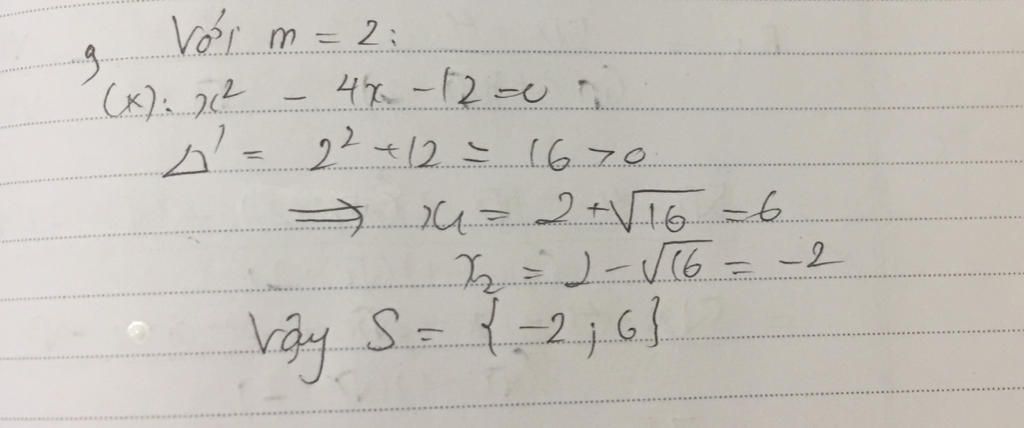 a, Với m = 2:
(x): x² - 4x - 12 = 0
Δ' = 2² + 12 = 16 > 0
⟹ x₁ = 2 + √16 = 6
x₂ = 2 - √16 = -2
Vậy S = {-2; 6}